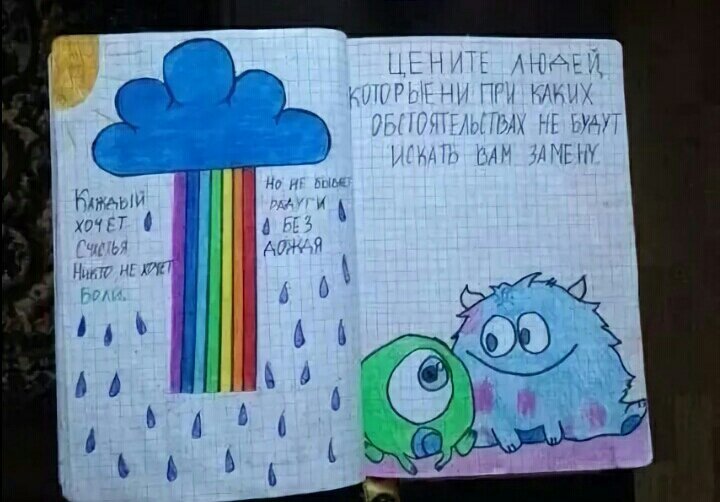 Каждый
хочет
Счастья
Никто не хочет
Боли.
Но не бывает
радуги
без
дождя
ЦЕНИТЕ ЛЮДЕЙ,
КОТОРЫЕ НИ ПРИ КАКИХ
ОБСТОЯТЕЛЬСТВАХ НЕ БУДУТ
ИСКАТЬ ВАМ ЗАМЕНУ.